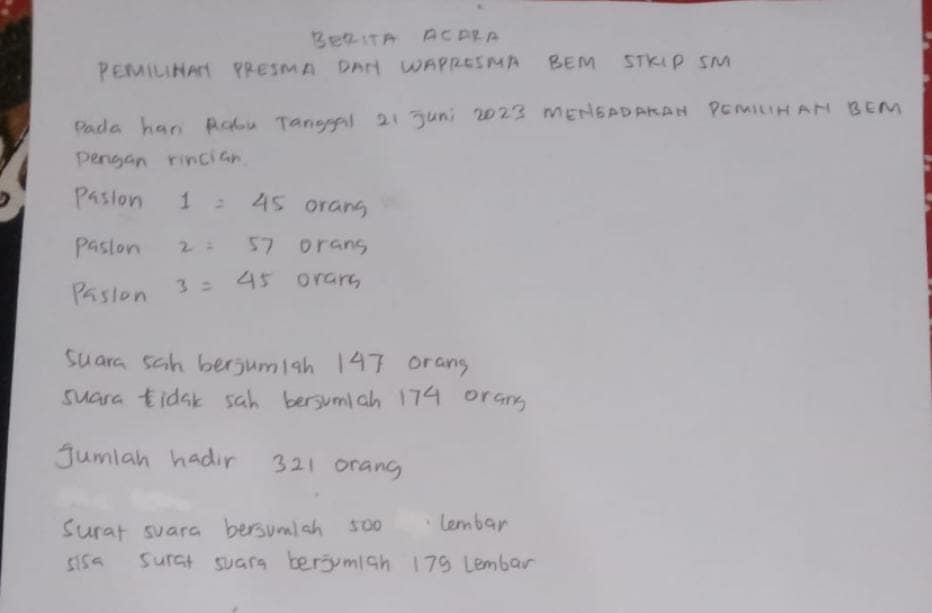 BERITA ACARA
PEMILIHAN PRESMA DAN WAPRESMA BEM STKIP SM
Pada hari Rabu Tanggal 21 Juni 2023 MENGADAKAN PEMILIHAN BEM
Dengan rincian
Paslon 1 = 45 orang
Paslon 2 = 57 orang
Paslon 3 = 45 orang
Suara sah berjumlah 147 orang
suara tidak sah berjumlah 174 orang
Jumlah hadir 321 orang
Surat suara berjumlah 500 lembar
sisa surat suara berjumlah 179 Lembar